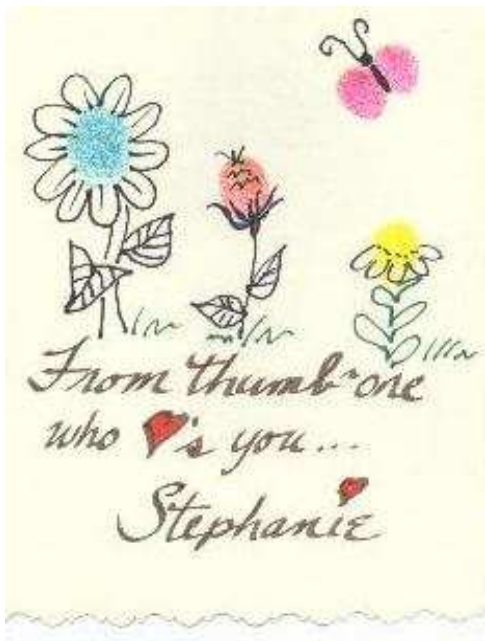 From thumb-one
who ♥'s you...
Stephanie